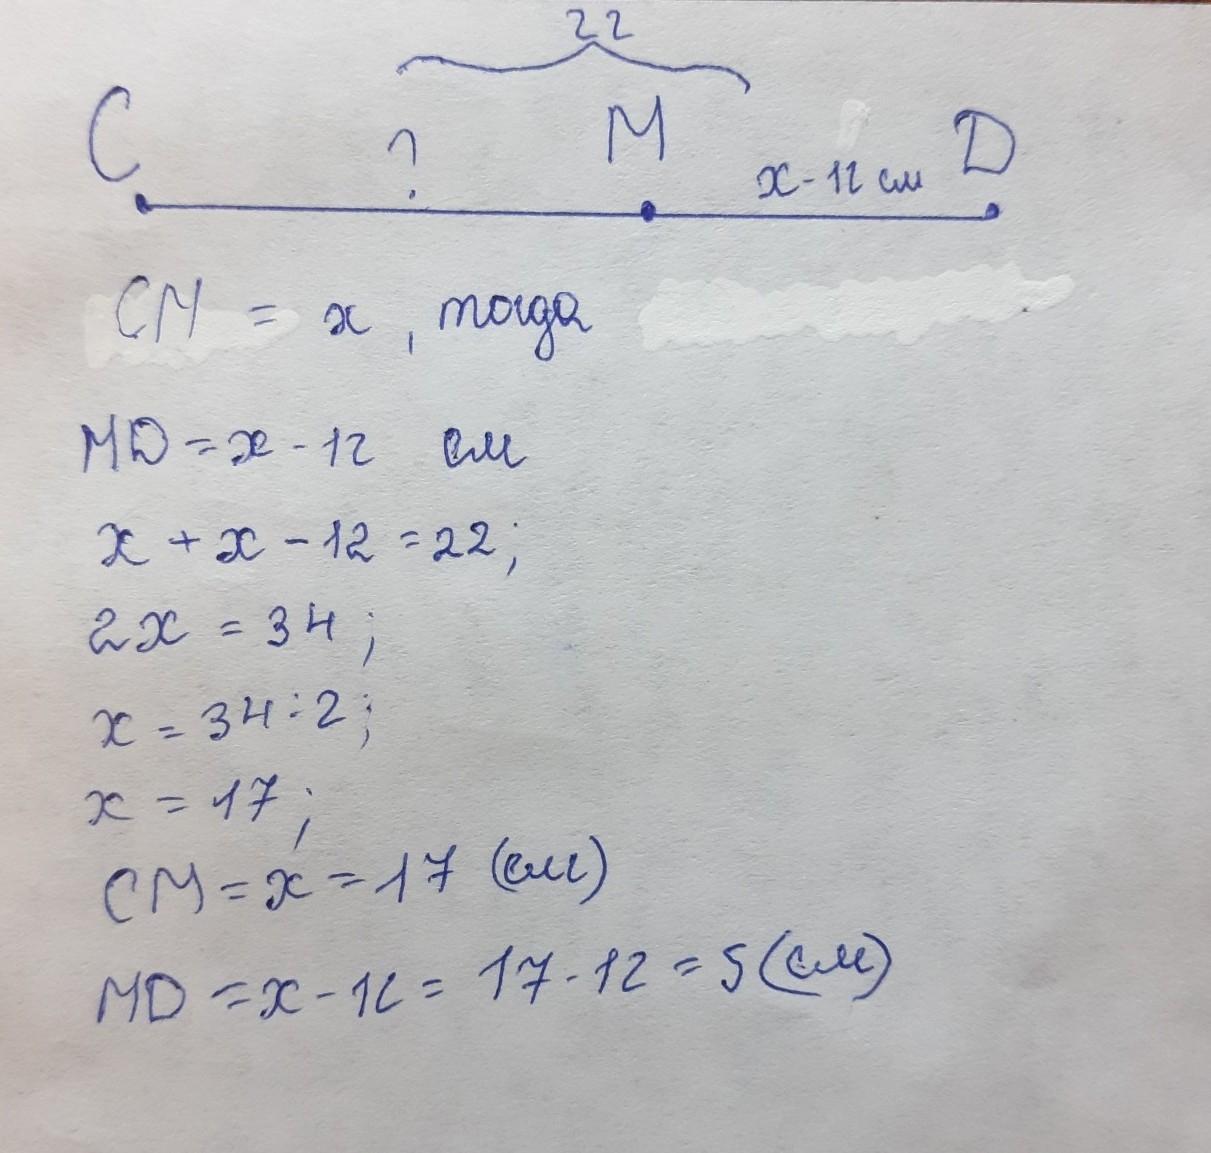 22
C ? M x - 12 см D
CM = x, тогда
MD = x - 12 см
x + x - 12 = 22;
2x = 34;
x = 34 : 2;
x = 17;
CM = x = 17 (см)
MD = x - 12 = 17 - 12 = 5 (см)